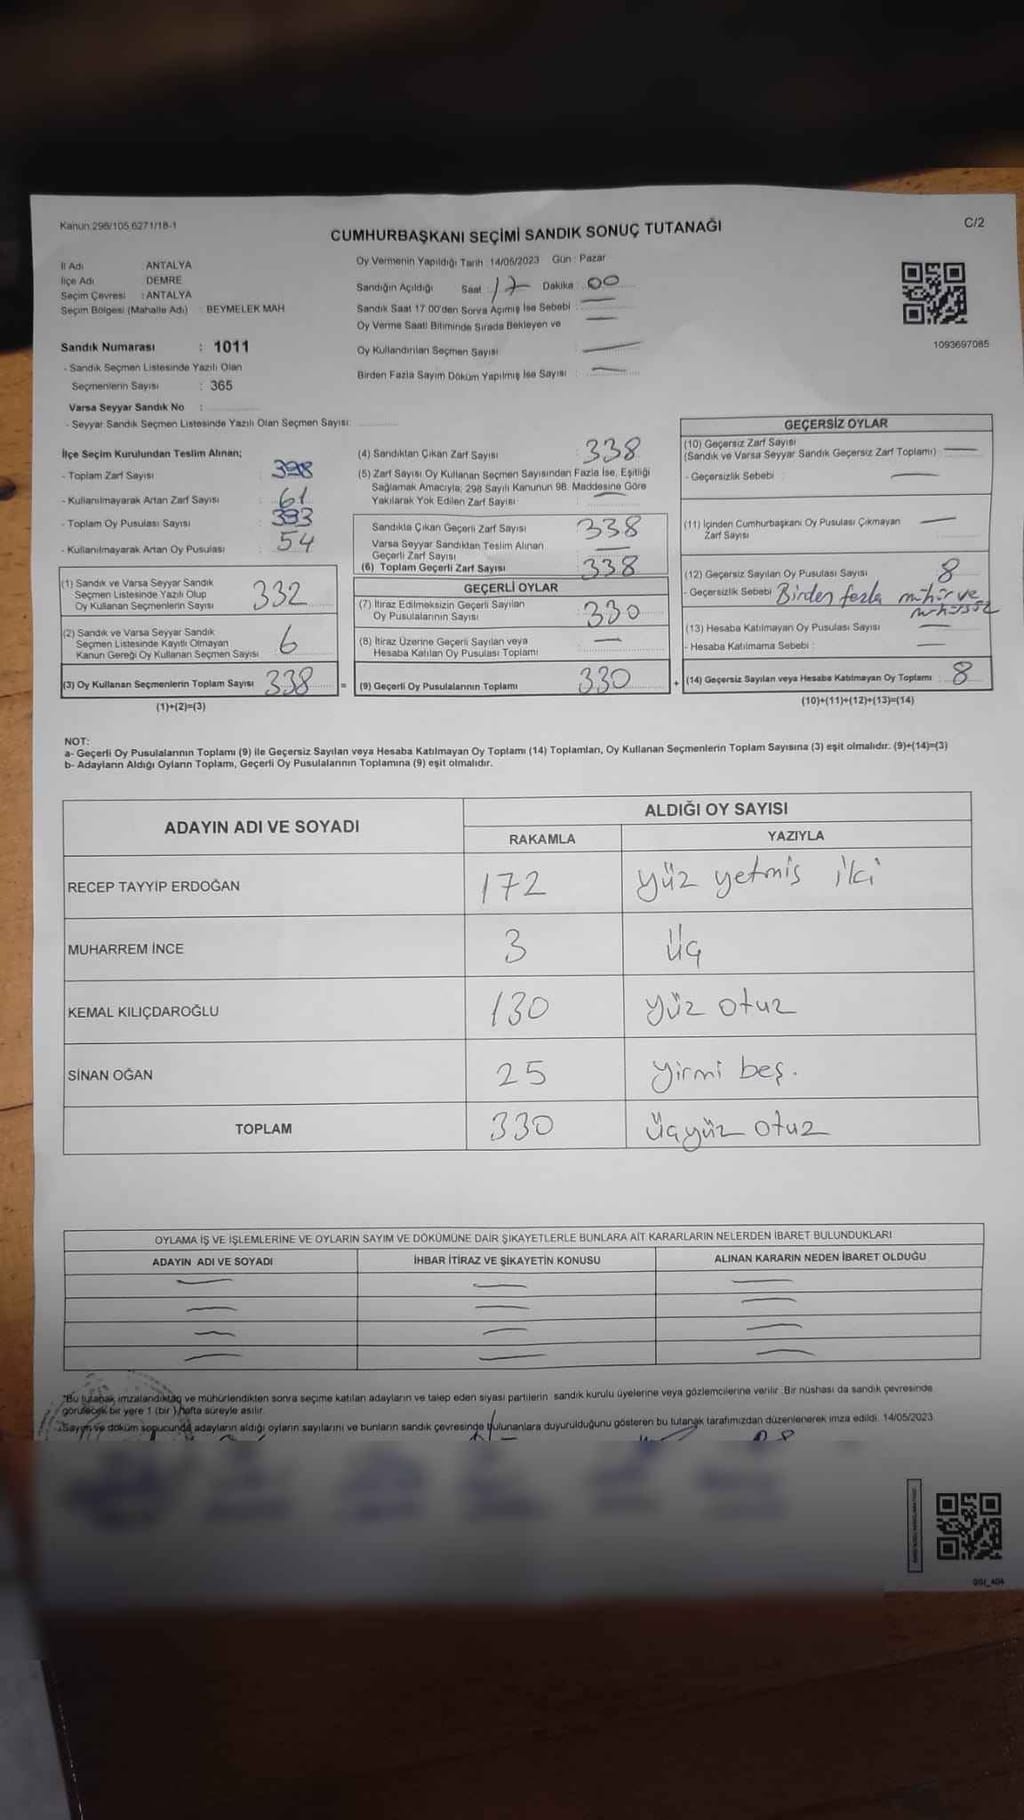 Kanun:298/105,6271/18-1
C/2
CUMHURBAŞKANI SEÇİMİ SANDIK SONUÇ TUTANAĞI
İl Adı : ANTALYA
İlçe Adı : DEMRE
Seçim Çevresi : ANTALYA
Seçim Bölgesi (Mahalle Adı) : BEYMELEK MAH
Sandık Numarası : 1011
- Sandık Seçmen Listesinde Yazılı Olan
Seçmenlerin Sayısı : 365
Varsa Seyyar Sandık No :
- Seyyar Sandık Seçmen Listesinde Yazılı Olan Seçmen Sayısı:
Oy Vermenin Yapıldığı Tarih : 14/05/2023 Gün : Pazar
Sandığın Açıldığı Saat : 17 Dakika : 00
Sandık Saat 17.00'den Sonra Açılmış İse Sebebi :
Oy Verme Saati Bitiminde Sırada Bekleyen ve
Oy Kullandırılan Seçmen Sayısı :
Birden Fazla Sayım Döküm Yapılmış İse Sayısı :
1093697085
İlçe Seçim Kurulundan Teslim Alınan;
- Toplam Zarf Sayısı : 398
- Kullanılmayarak Artan Zarf Sayısı : 61
- Toplam Oy Pusulası Sayısı : 393
- Kullanılmayarak Artan Oy Pusulası : 54
(1) Sandık ve Varsa Seyyar Sandık
Seçmen Listesinde Yazılı Olup
Oy Kullanan Seçmenlerin Sayısı 332
(2) Sandık ve Varsa Seyyar Sandık
Seçmen Listesinde Kayıtlı Olmayan
Kanun Gereği Oy Kullanan Seçmen Sayısı 6
(3) Oy Kullanan Seçmenlerin Toplam Sayısı 338 =
(1)+(2)=(3)
(4) Sandıktan Çıkan Zarf Sayısı : 338
(5) Zarf Sayısı Oy Kullanan Seçmen Sayısından Fazla İse, Eşitliği
Sağlamak Amacıyla, 298 Sayılı Kanunun 98. Maddesine Göre
Yakılarak Yok Edilen Zarf Sayısı :
Sandıkta Çıkan Geçerli Zarf Sayısı 338
Varsa Seyyar Sandıktan Teslim Alınan
Geçerli Zarf Sayısı
(6) Toplam Geçerli Zarf Sayısı 338
GEÇERLİ OYLAR
(7) İtiraz Edilmeksizin Geçerli Sayılan
Oy Pusulalarının Sayısı 330
(8) İtiraz Üzerine Geçerli Sayılan veya
Hesaba Katılan Oy Pusulası Toplamı
(9) Geçerli Oy Pusulalarının Toplamı 330 +
GEÇERSİZ OYLAR
(10) Geçersiz Zarf Sayısı
(Sandık ve Varsa Seyyar Sandık Geçersiz Zarf Toplamı)
- Geçersizlik Sebebi :
(11) İçinden Cumhurbaşkanı Oy Pusulası Çıkmayan
Zarf Sayısı
(12) Geçersiz Sayılan Oy Pusulası Sayısı 8
- Geçersizlik Sebebi Birden fazla mühür ve
mühürsüz
(13) Hesaba Katılmayan Oy Pusulası Sayısı
- Hesaba Katılmama Sebebi :
(14) Geçersiz Sayılan veya Hesaba Katılmayan Oy Toplamı 8
(10)+(11)+(12)+(13)=(14)
NOT:
a- Geçerli Oy Pusulalarının Toplamı (9) ile Geçersiz Sayılan veya Hesaba Katılmayan Oy Toplamı (14) Toplamları, Oy Kullanan Seçmenlerin Toplam Sayısına (3) eşit olmalıdır. (9)+(14)=(3)
b- Adayların Aldığı Oyların Toplamı, Geçerli Oy Pusulalarının Toplamına (9) eşit olmalıdır.
ADAYIN ADI VE SOYADI
ALDIĞI OY SAYISI
RAKAMLA YAZIYLA
RECEP TAYYİP ERDOĞAN 172 yüz yetmis iki
MUHARREM İNCE 3 üç
KEMAL KILIÇDAROĞLU 130 yüz otuz
SİNAN OĞAN 25 yirmi beş.
TOPLAM 330 üçyüz otuz
OYLAMA İŞ VE İŞLEMLERİNE VE OYLARIN SAYIM VE DÖKÜMÜNE DAİR ŞİKAYETLERLE BUNLARA AİT KARARLARIN NELERDEN İBARET BULUNDUKLARI
ADAYIN ADI VE SOYADI İHBAR İTİRAZ VE ŞİKAYETİN KONUSU ALINAN KARARIN NEDEN İBARET OLDUĞU
*Bu tutanak imzalandıktan ve mühürlendikten sonra seçime katılan adayların ve talep eden siyasi partilerin sandık kurulu üyelerine veya gözlemcilerine verilir. Bir nüshası da sandık çevresinde
görülecek bir yere 1 (bir ) hafta süreyle asılır.
Sayım ve döküm sonucunda adayların aldığı oyların sayılarını ve bunların sandık çevresinde bulunanlara duyurulduğunu gösteren bu tutanak tarafımızdan düzenlenerek imza edildi. 14/05/2023